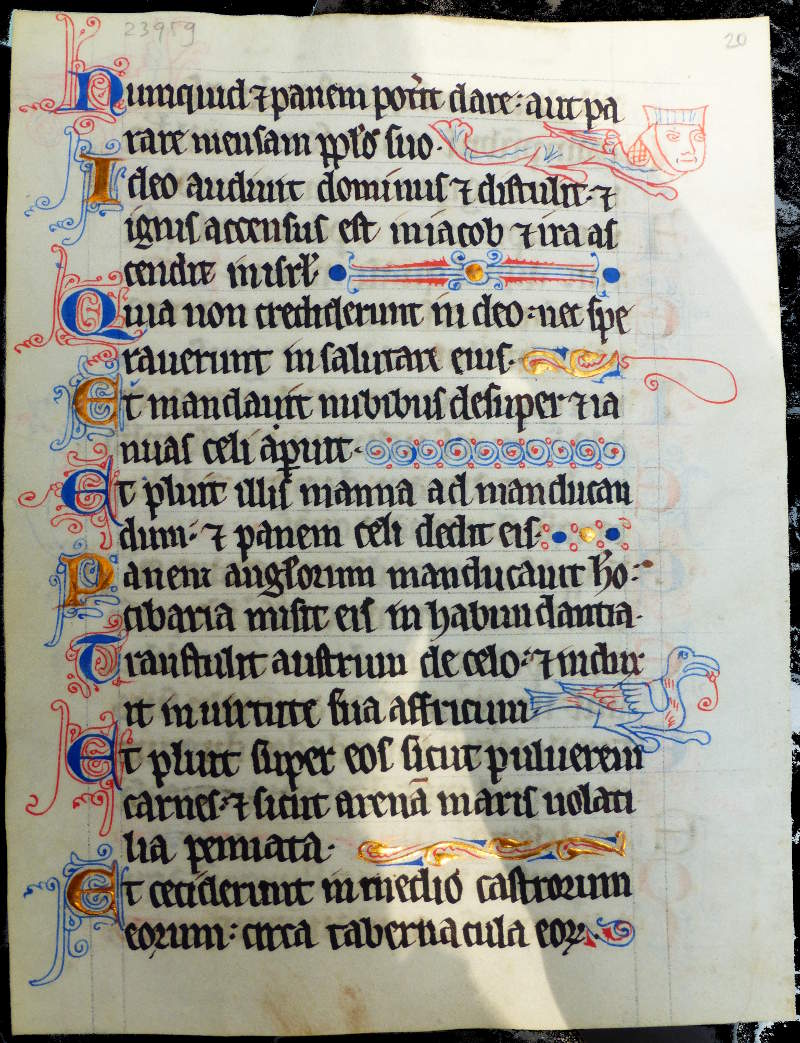 23959
20
Numquid ⁊ panem pot̾it dare: aut pa
rare mensam pp̱l̾o suo.
Ideo audiuit dominus ⁊ distulit· ⁊
ignis accensus est in iacob ⁊ ira as
cendit in isrl̾
Quia non crediderunt in deo: nec spe
rauerunt in salutare eius.
Et mandauit nubibus desuper ⁊ ia
nuas celi aperuit·
Et pluit illis manna ad manducan
dum· ⁊ panem celi dedit eis·
Panem angl̾orum manducauit ho:
cibaria misit eis in habundantia·
Transtulit austrum de celo: ⁊ indux
it in uirtute sua affricum
Et pluit super eos sicut puluerem
carnes: ⁊ sicut arenā maris uolati
lia pennata·
Et ceciderunt in medio castrorum
eorum: circa tabernacula eoꝝ·